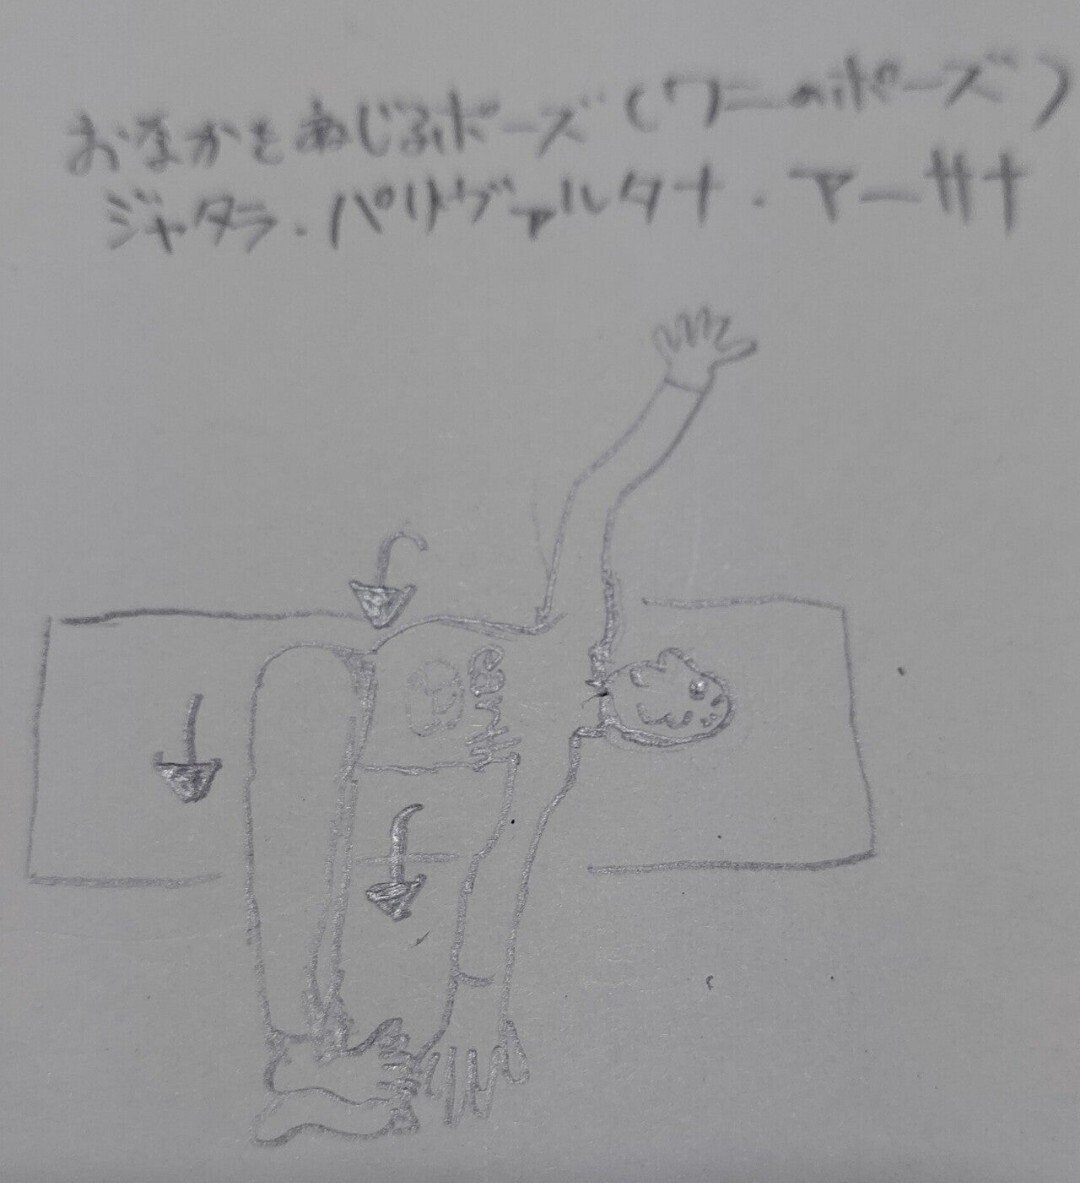 おなかをねじるポーズ(ワニのポーズ)
ジャタラ・パリヴァルタナ・アーサナ